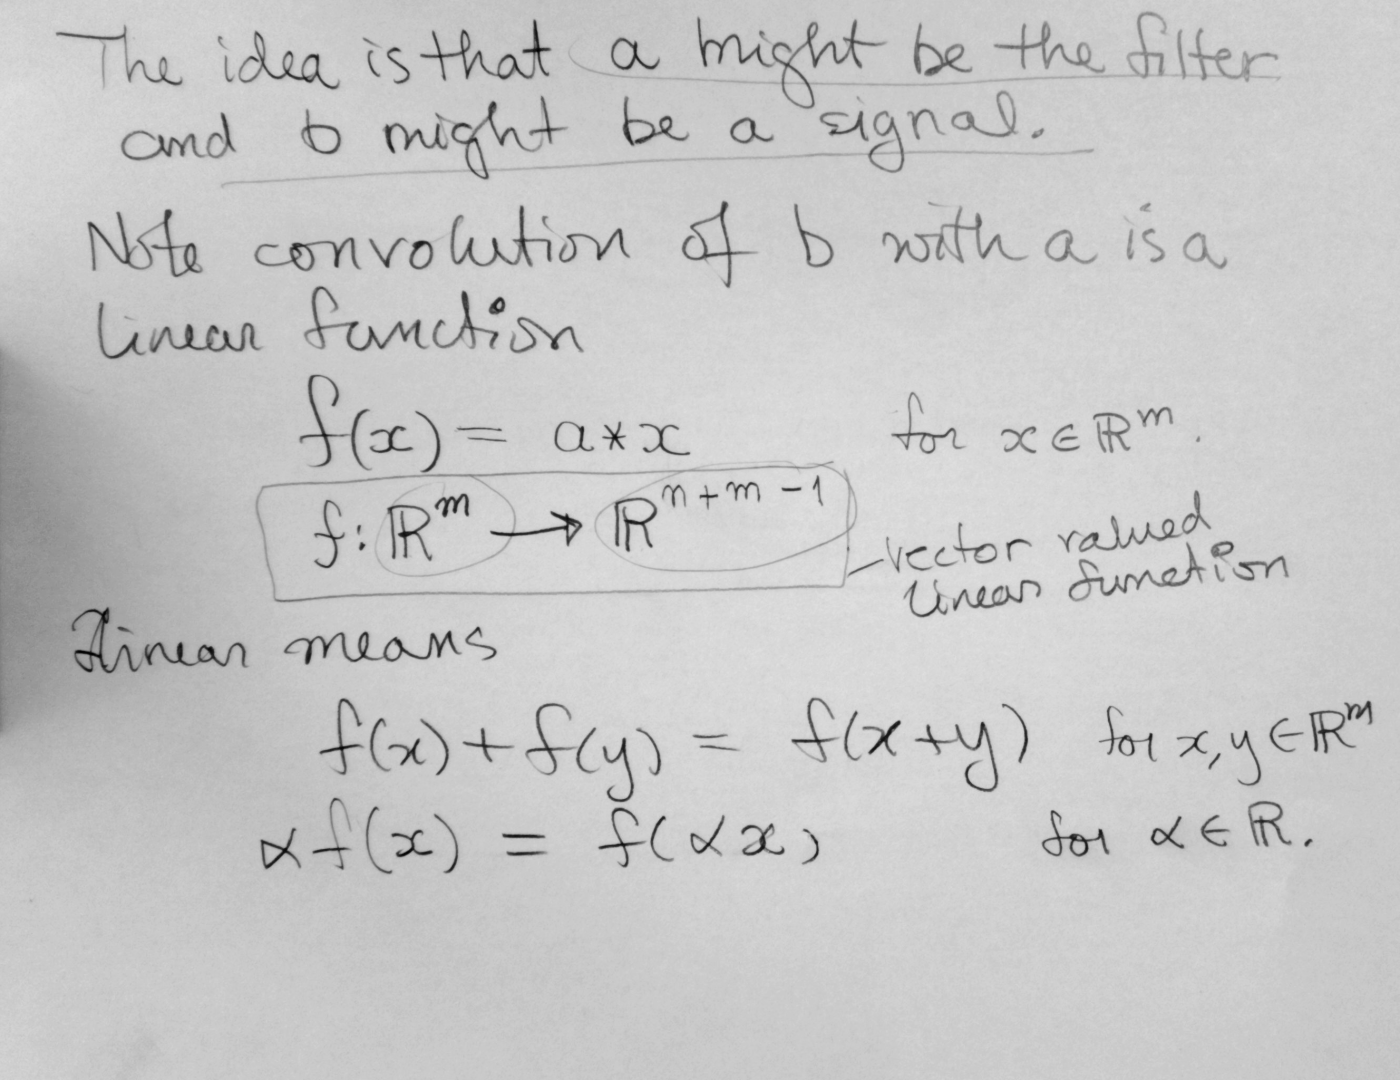 The idea is that a might be the filter
and b might be a signal.
Note convolution of b with a is a
linear function
f(x) = a * x for x ∈ ℝ^m.
f: ℝ^m → ℝ^{n+m-1}
vector valued
linear function
Linear means
f(x) + f(y) = f(x+y) for x, y ∈ ℝ^m
α f(x) = f(αx) for α ∈ ℝ.